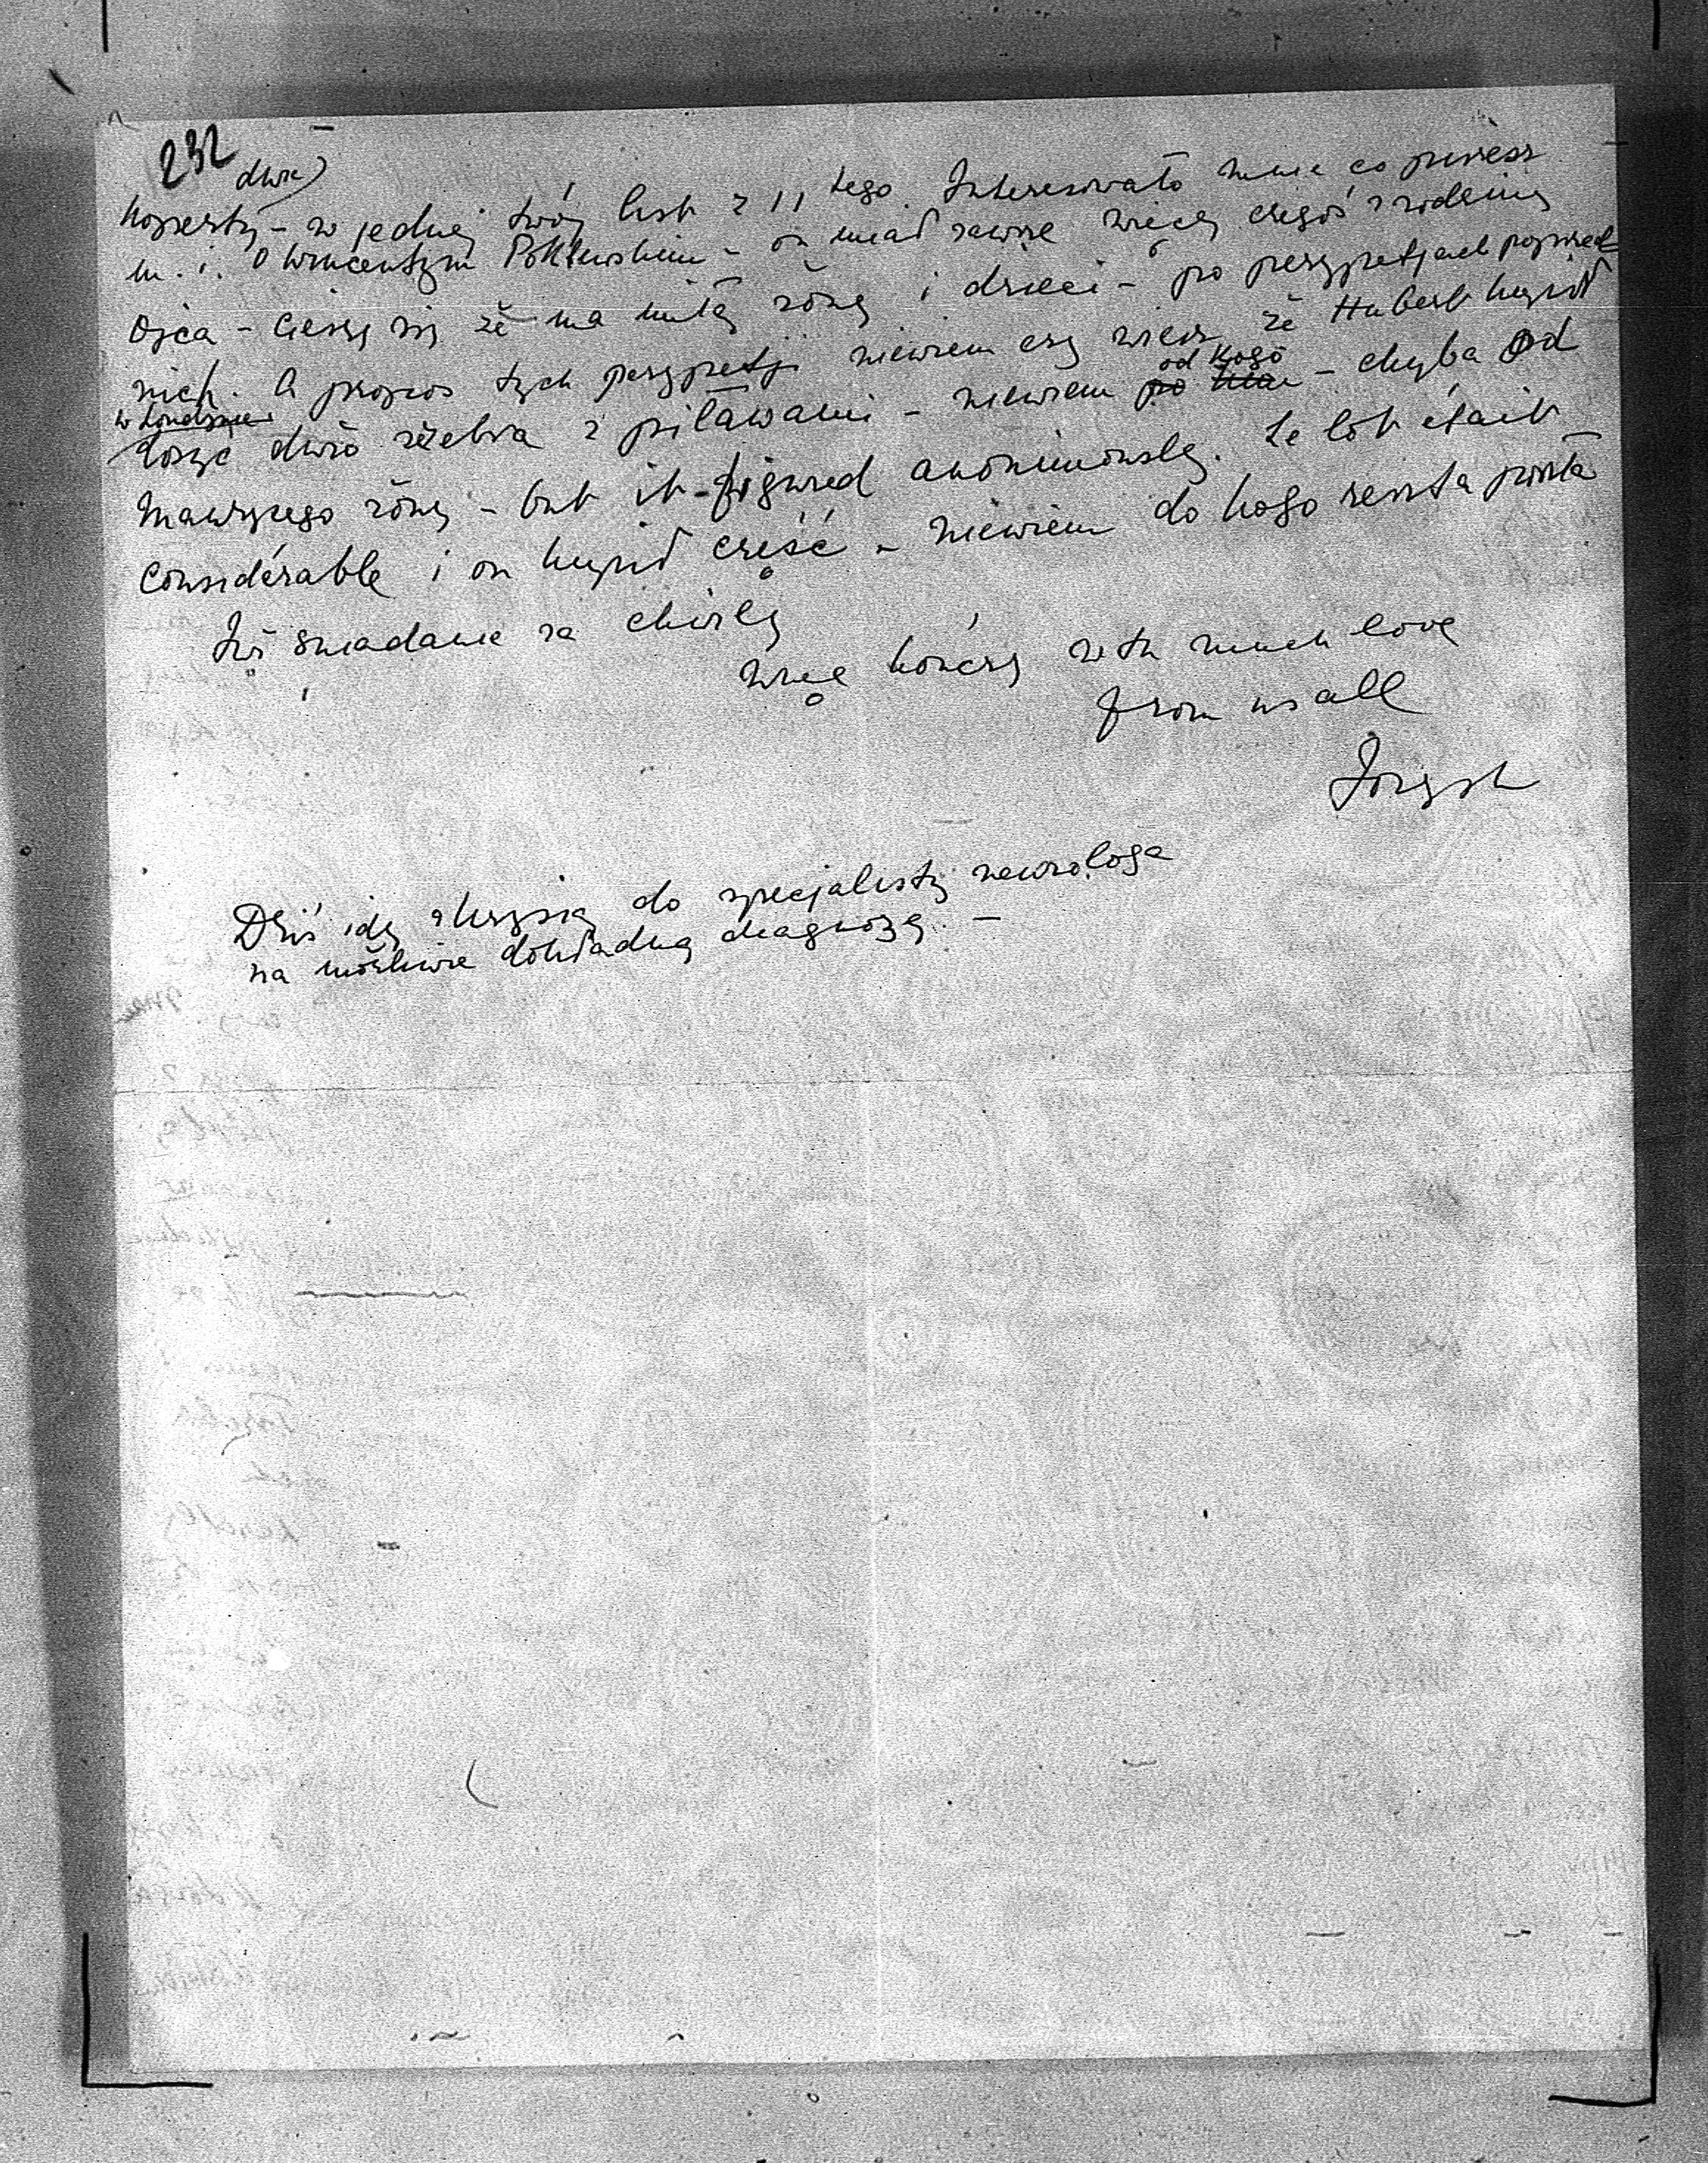 232
dwie
koperty - w jednej twój list z 11 tego. Interesowało mnie co piszesz
m. i. o Wincentym Poklewskim - on miał zawsze więcej czegoś z rodziny
Ojca - Cieszę się że ma miłą żonę i dzieci - po perypetjach poprzed
nich. A propos tych perypetji niewiem czy wiesz że Hubert kupił
w Londynie od kogo
dosyć dużo srebra z pilawami - niewiem - chyba Od
Maurycego żony - but it figured anonimously. Le lot était
considérable i on kupił część - niewiem do kogo reszta poszła
Już śniadanie za chwilę
więc kończę with much love
from us all
Dziś idę z Krzysią do specjalisty neurologa
na możliwie dokładną diagnozę. -